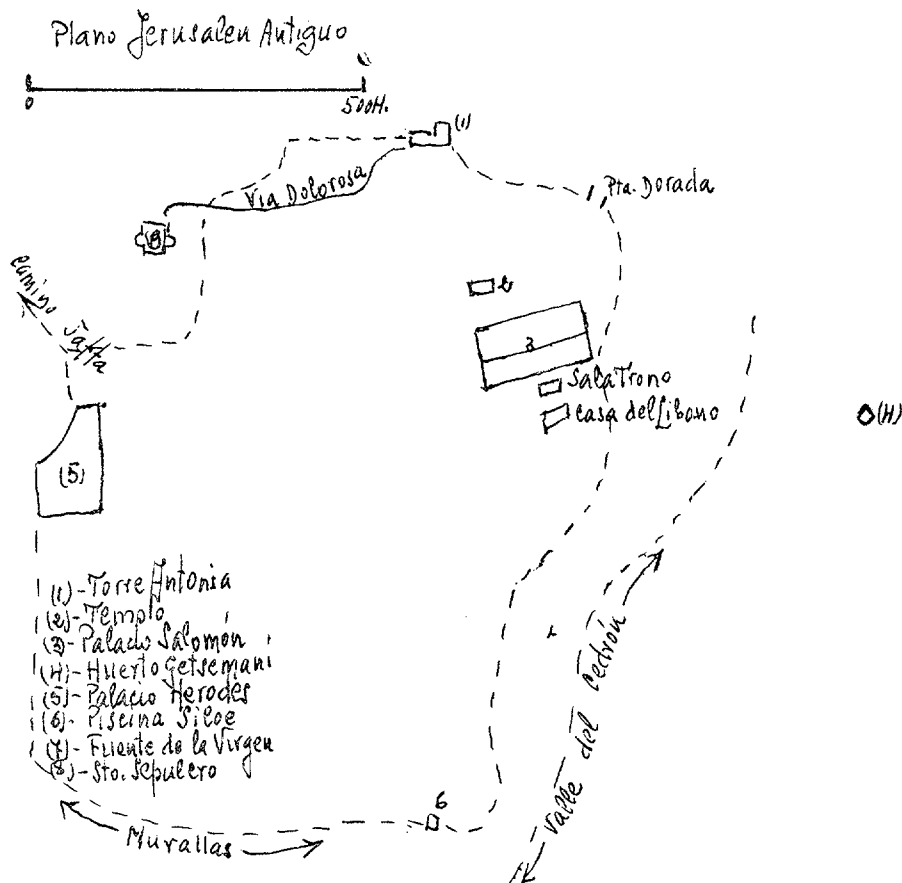 Plano Jerusalen Antiguo
0 500M.
(1)
Via Dolorosa
Pta. Dorada
8
Camino Jaffa
2
3
Sala Trono
Casa del Libano
(4)
(5)
(1)-Torre Antonia
(2)-Templo
(3)-Palacio Salomón
(4)-Huerto Getsemani
(5)-Palacio Herodes
(6)-Piscina Siloe
(7)-Fuente de la Virgen
(8)-Sto. Sepulcro
Valle del Cedrón
6
Murallas